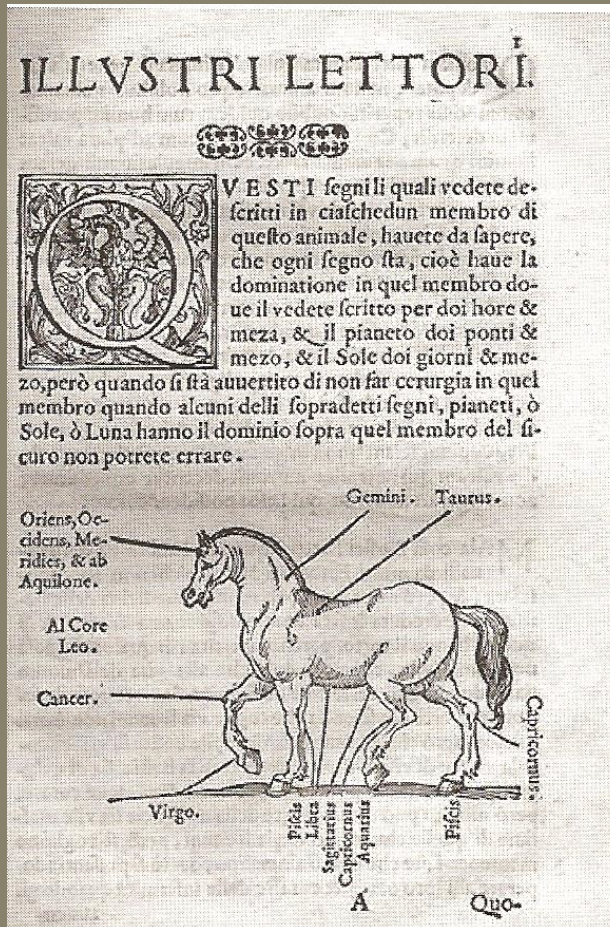 1
ILLVSTRI LETTORI.
QVESTI ſegni li quali vedete de-
ſcritti in ciaſchedun membro di
queſto animale, hauete da ſapere,
che ogni ſegno ſta, cioè haue la
dominatione in quel membro do-
ue il vedete ſcritto per doi hore &
meza, & il pianeto doi ponti &
mezo, & il Sole doi giorni & me-
zo, però quando ſi ſtà auuertito di non far cerurgia in quel
membro quando alcuni delli ſopradetti ſegni, pianeti, ò
Sole, ò Luna hanno il dominio ſopra quel membro del ſi-
curo non potrete errare.
Gemini. Taurus.
Oriens, Oc-
cidens, Me-
ridies, & ab
Aquilone.
Al Core
Leo.
Cancer.
Capricornus.
Virgo.
Piſcis
Libra
Sagitarius
Capricornus
Aquarius
Piſcis
A Quo-